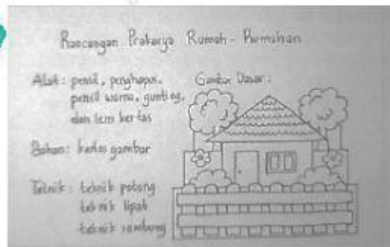 Rancangan Prakarya Rumah-Rumahan
Alat: pensil, penghapus,
pensil warna, gunting,
dan lem kertas
Bahan: kertas gambar
Teknik: teknik potong
teknik lipat
teknik sambung
Gambar Dasar: